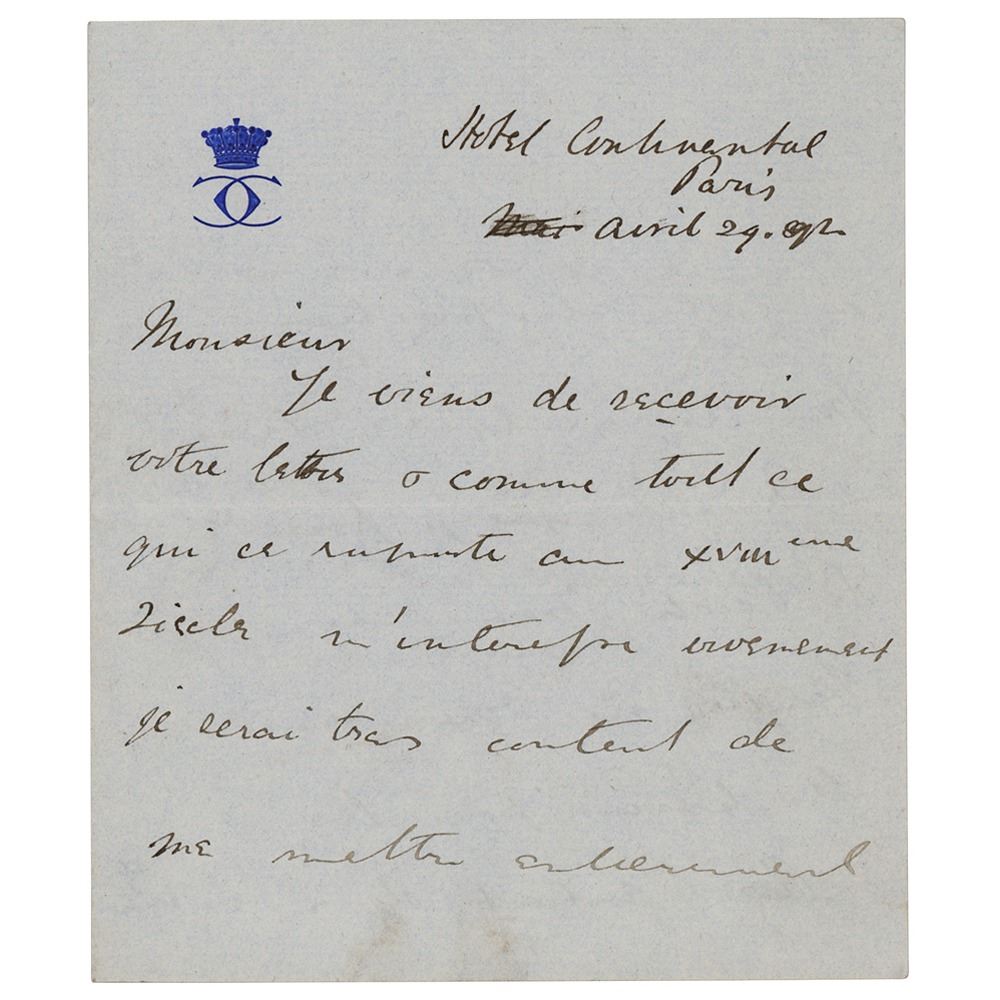 Hotel Continental
Paris
Avril 29. 92
Monsieur
Je viens de recevoir
votre lettre & comme tout ce
qui ce raporte au XVIIIeme
Siècle m'interesse vivement
je serai tres content de
me mettre entierement